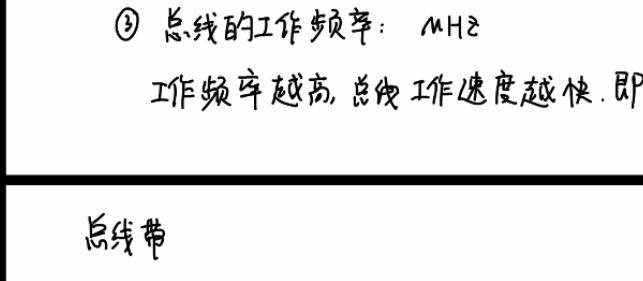 ③ 总线的工作频率: MHz
工作频率越高, 总线工作速度越快. 即
总线带